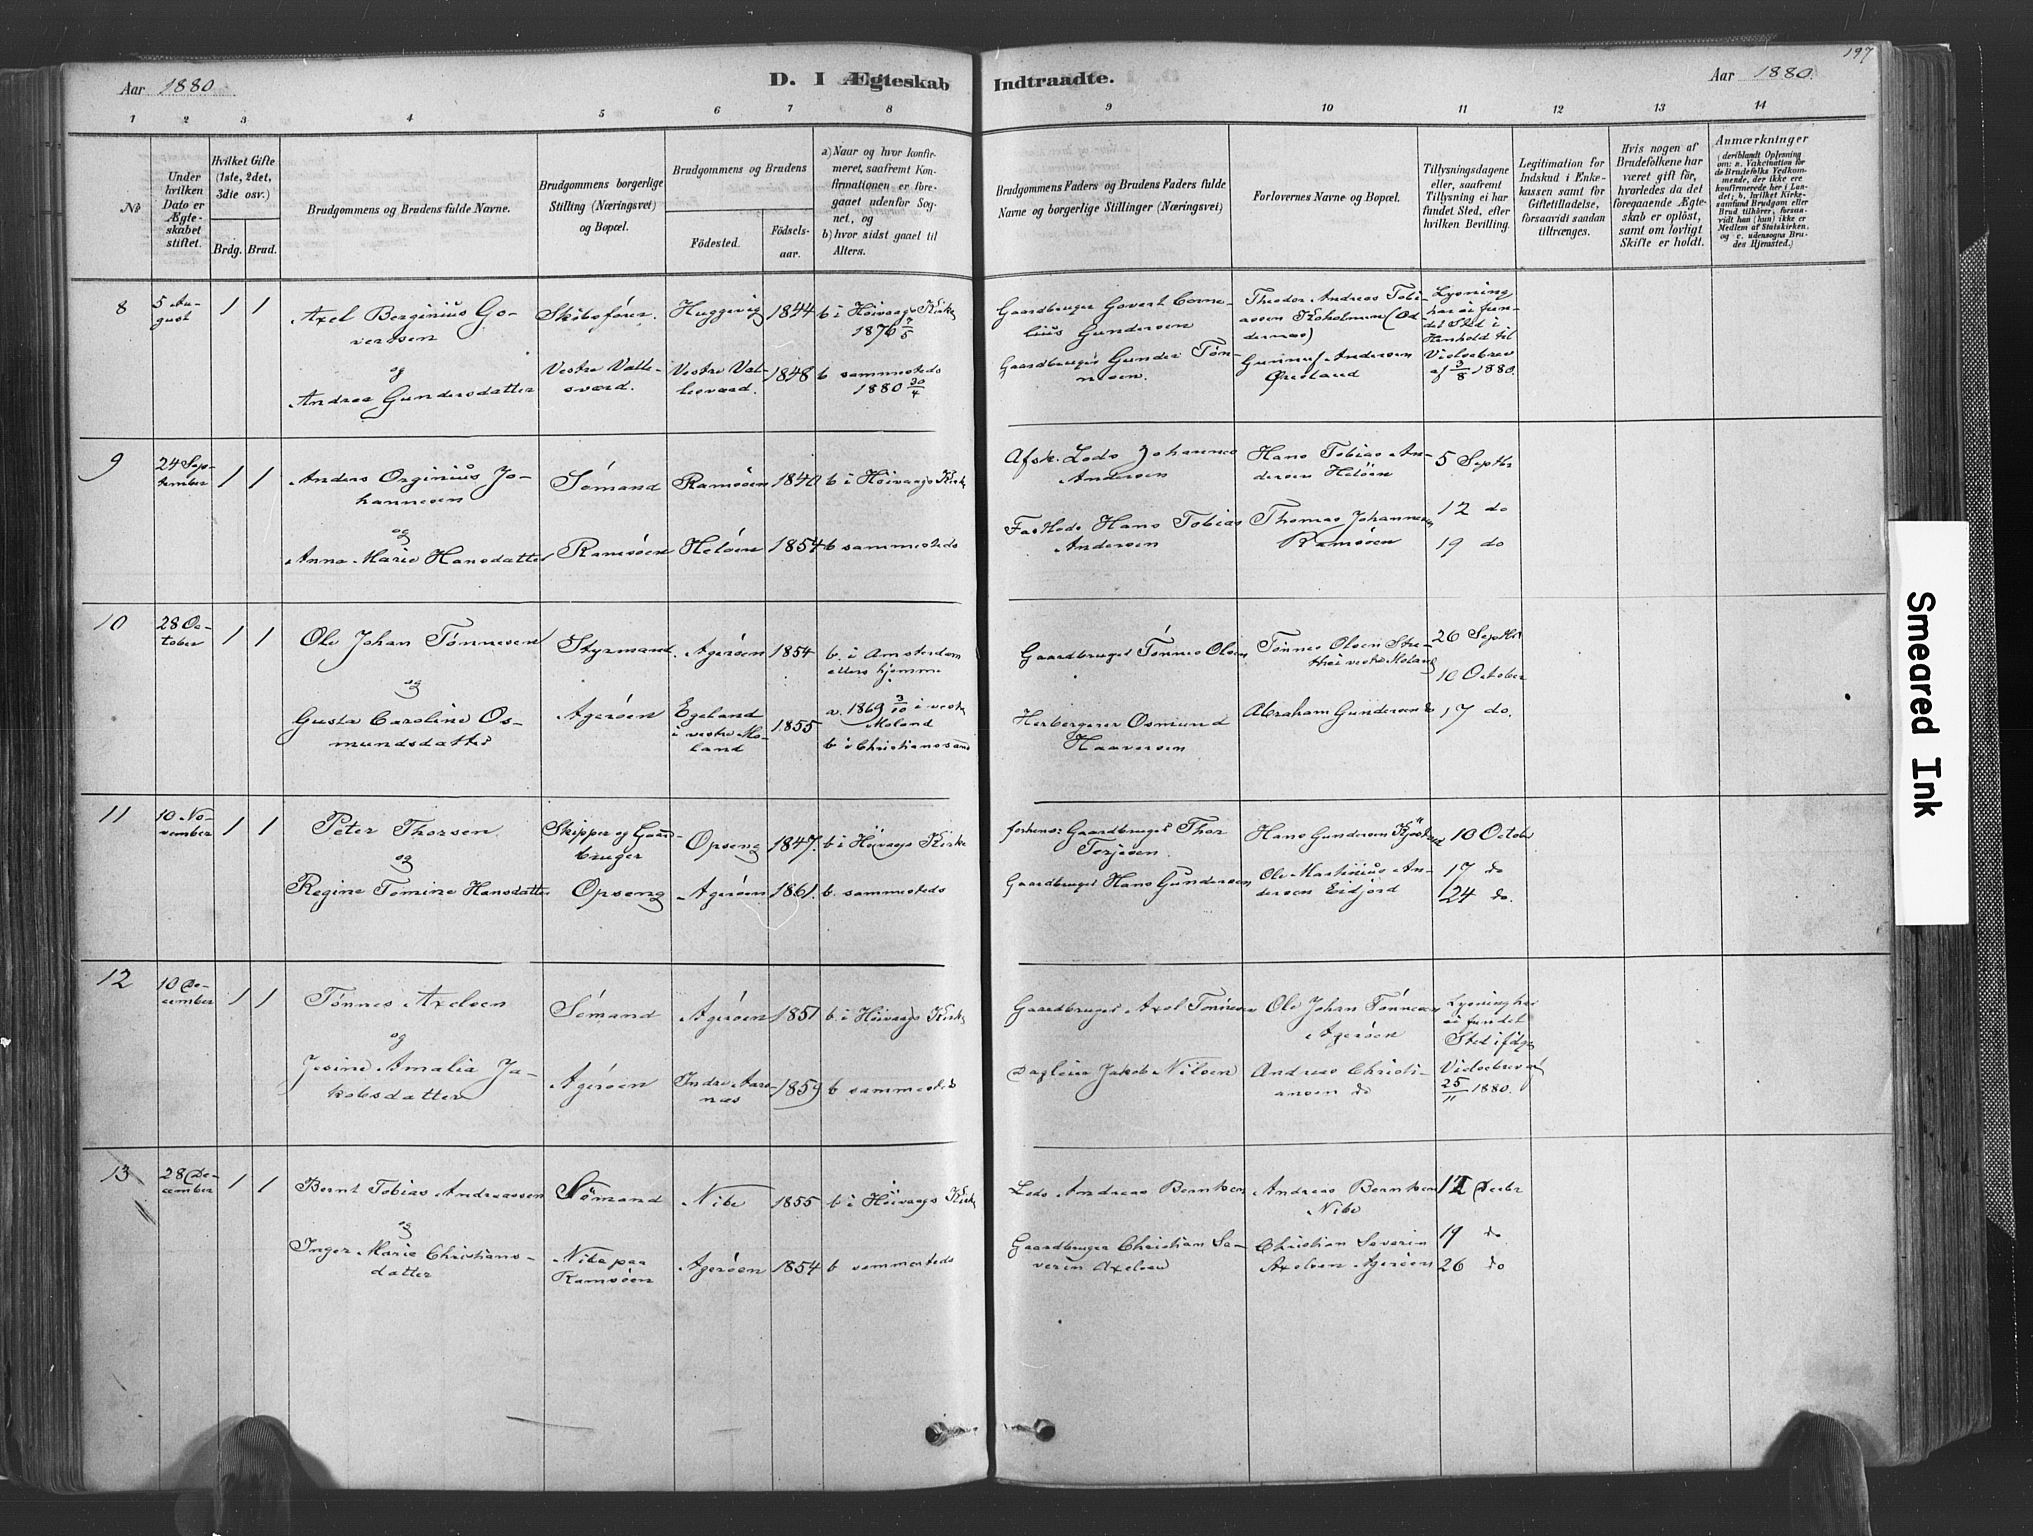 197
Aar 1880.
D. I Ægteskab Indtraadte.
Aar 1880.
1 2 3 4 5 6 7 8 9 10 11 12 13 14
No
Under hvilken Dato er Ægteskabet stiftet.
Hvilket Gifte (1ste, 2det, 3die osv.)
Brdg. Brud.
Brudgommens og Brudens fulde Navne.
Brudgommens borgerlige Stilling (Næringsvei) og Bopæl.
Brudgommens og Brudens
Födested.
Födselsaar.
a) Naar og hvor konfirmeret, saafremt Konfirmationen er foregaaet udenfor Sognet, og
b) hvor sidst gaaet til Alters.
Brudgommens Faders og Brudens Faders fulde Navne og borgerlige Stillinger (Næringsvei)
Forlovernes Navne og Bopæl.
Tillysningsdagene eller, saafremt Tillysning ei har fundet Sted, efter hvilken Bevilling.
Legitimation for Indskud i Enkekassen samt for Giftetilladelse, forsaavidt saadan tiltrænges.
Hvis nogen af Brudefolkene har været gift för, hvorledes da det foregaaende Ægteskab er oplöst, samt om lovligt Skifte er holdt.
Anmærkninger
(deriblandt Oplysning om: a. Vakcination for de Brudefolks Vedkommende, der ikke ere konfirmerede her i Landet; b. hvilket Kirkesamfund Brudgom eller Brud tilhörer, forsaavidt han (hun) ikke er Medlem af Statskirken, og c. udensogns Brudes Hjemsted.)
8
5 August
1 1
Axel Berginius Govertsen
og
Andrea Gundersdatter
Skibsfører.
Vestre Vallesværd.
Huggevig 1844
Vestre Vallesværd. 1848
b i Høivaags Kirke
1876 7/5
b sammesteds
1880 30/4
Gaardbruger Govert Cornelius Gundersen
Gaardbruger Gunder Tønnesen.
Theodor Andreas Tobiassen Skoholmen (Oddernæs)
Gunnuf Andersen
Øresland
Lysning har ei fundet Sted i Henhold til Vielsebrev af 3/8 1880.
9
24 September
1 1
Anders Orginius Johannesen
og
Anna Marie Hansdatter
Sømand
Ramsøen
Ramsøen 1840
Heløen 1854
b i Høivaags Kirke
b sammesteds
Afsk. Lods Johannes Andersen
Fastlods Hans Tobias Andersen
Hans Tobias Andersen Heløen
Thomas Johannesen
Ramsøen
5 Septbr
12 do
19 do
10
28 October
1 1
Ole Johan Tønnesen
og
Gusta Caroline Osmundsdatter
Styrmand.
Agerøen
Agerøen 1854
Egeland i vestre Moland 1855
b. i Amsterdam
ellers hjemme
a. 1869 3/10 i vestre Moland
b i Christianssand
Gaardbruger Tønnes Olsen
Herbergerer Osmund Haaversen
Tønnes Olsen
vestre Moland
Abraham Gundersen do
26 Septbr
10 October
17 do.
11
10 November
1 1
Peter Thorsen
og
Regine Tomine Hansdatter
Skipper og Gaardbruger
Opseng
Opseng 1847.
Agerøen 1861.
b i Høivaags Kirke
b. sammesteds
forhens: Gaardbruger Thor Terjesen.
Gaardbruger Hans Gundersen
Hans Gundersen
Ole Martinius Andersen Eidjord
10 October
17 do
24 do.
12
10 December
1 1
Tønnes Axelsen
og
Jesine Amalia Jakobsdatter
Sømand
Agerøen
Agerøen 1851
Indre Aarsnæs 1859
b. i Høivaags Kirke
b sammesteds
Gaardbruger Axel Tønnesen
Dagleier Jakob Nilsen
Ole Johan Tønnesen
Agerøen
Andreas Christiansen do
Lysning har ei fundet Sted ifølge Vielsebrev af 25/11 1880.
13
28 December
1 1
Bernt Tobias Andreassen
og
Inger Marie Christiansdatter
Sømand
Nibe paa Ramsøen
Nibe 1855
Agerøen 1854
b i Høivaags Kirke
b sammesteds
Lods Andreas Berntsen
Gaardbruger Christian Severin Axelsen
Andreas Berntsen
Nibe
Christian Severin
Axelsen Agerøen
12 Decbr
19 do
26 do
Smeared Ink